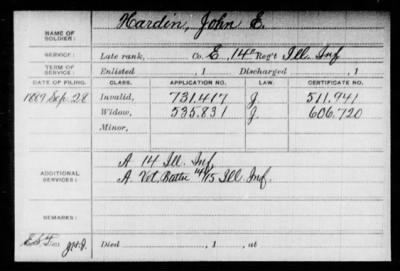 NAME OF SOLDIER: Hardin, John E.
SERVICE: Late rank, Co. E, 14" Reg't Ill. Inf
TERM OF SERVICE: Enlisted , 1 Discharged , 1
DATE OF FILING. CLASS. APPLICATION NO. LAW. CERTIFICATE NO.
1889 Sep. 28 Invalid, 731.417 J. 511.941
Widow, 535.831 J. 606.720
Minor,
ADDITIONAL SERVICES:
A 14 Ill. Inf.
A. Vet. Battn 14/15 Ill. Inf.
REMARKS:
Died , 1 , at